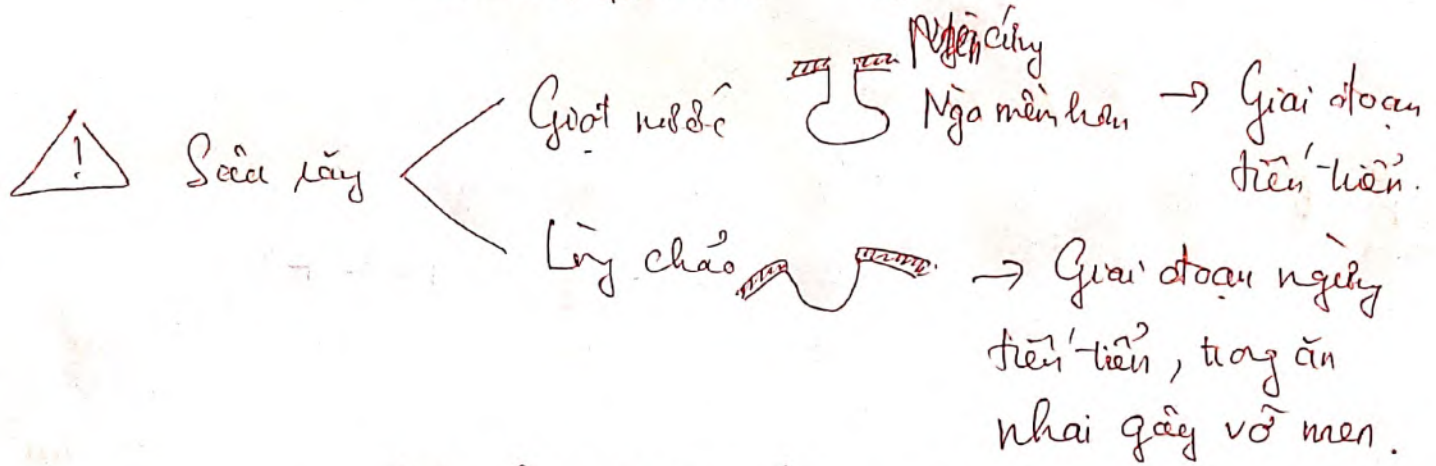 Sâu răng
Giọt nước
Men cứng
Ngà mềm hơn → Giai đoạn
tiến triển.
Lòng chảo → Giai đoạn ngừng
tiến triển, trong ăn
nhai gây vỡ men.